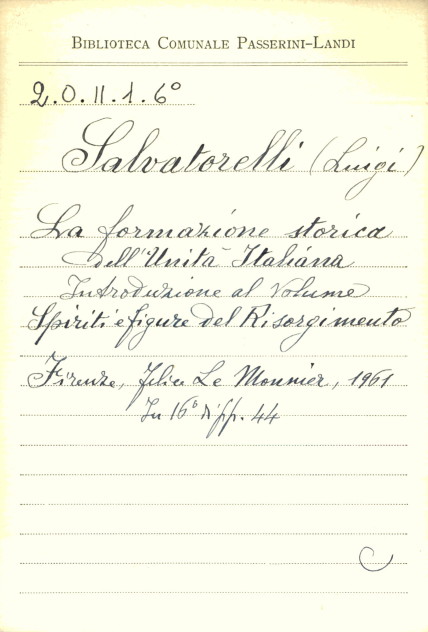 BIBLIOTECA COMUNALE PASSERINI-LANDI
2.O.II.1.6°
Salvatorelli (Luigi)
La formazione storica
dell'Unità Italiana
Introduzione al Volume
Spiriti e figure del Risorgimento
Firenze, Felice Le Monnier, 1961
In 16° di pp. 44
C